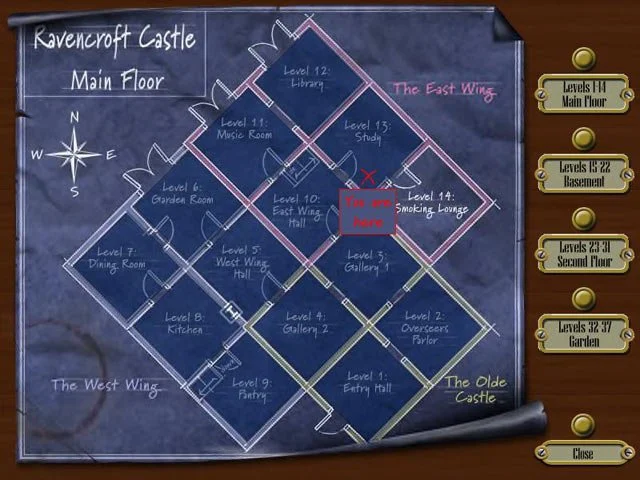 Ravencroft Castle
Main Floor
N
W
E
S
The East Wing
Level 12:
Library
Level 11:
Music Room
Level 13:
Study
Level 6:
Garden Room
Level 10:
East Wing
Hall
You are
here
Level 14:
Smoking Lounge
Level 7:
Dining Room
Level 5:
West Wing
Hall
Level 3:
Gallery 1
Level 8:
Kitchen
Level 4:
Gallery 2
Level 2:
Overseers
Parlor
The West Wing
Level 9:
Pantry
Level 1:
Entry Hall
The Olde
Castle
Levels 1-14
Main Floor
Levels 15-22
Basement
Levels 23-31
Second Floor
Levels 32-37
Garden
Close